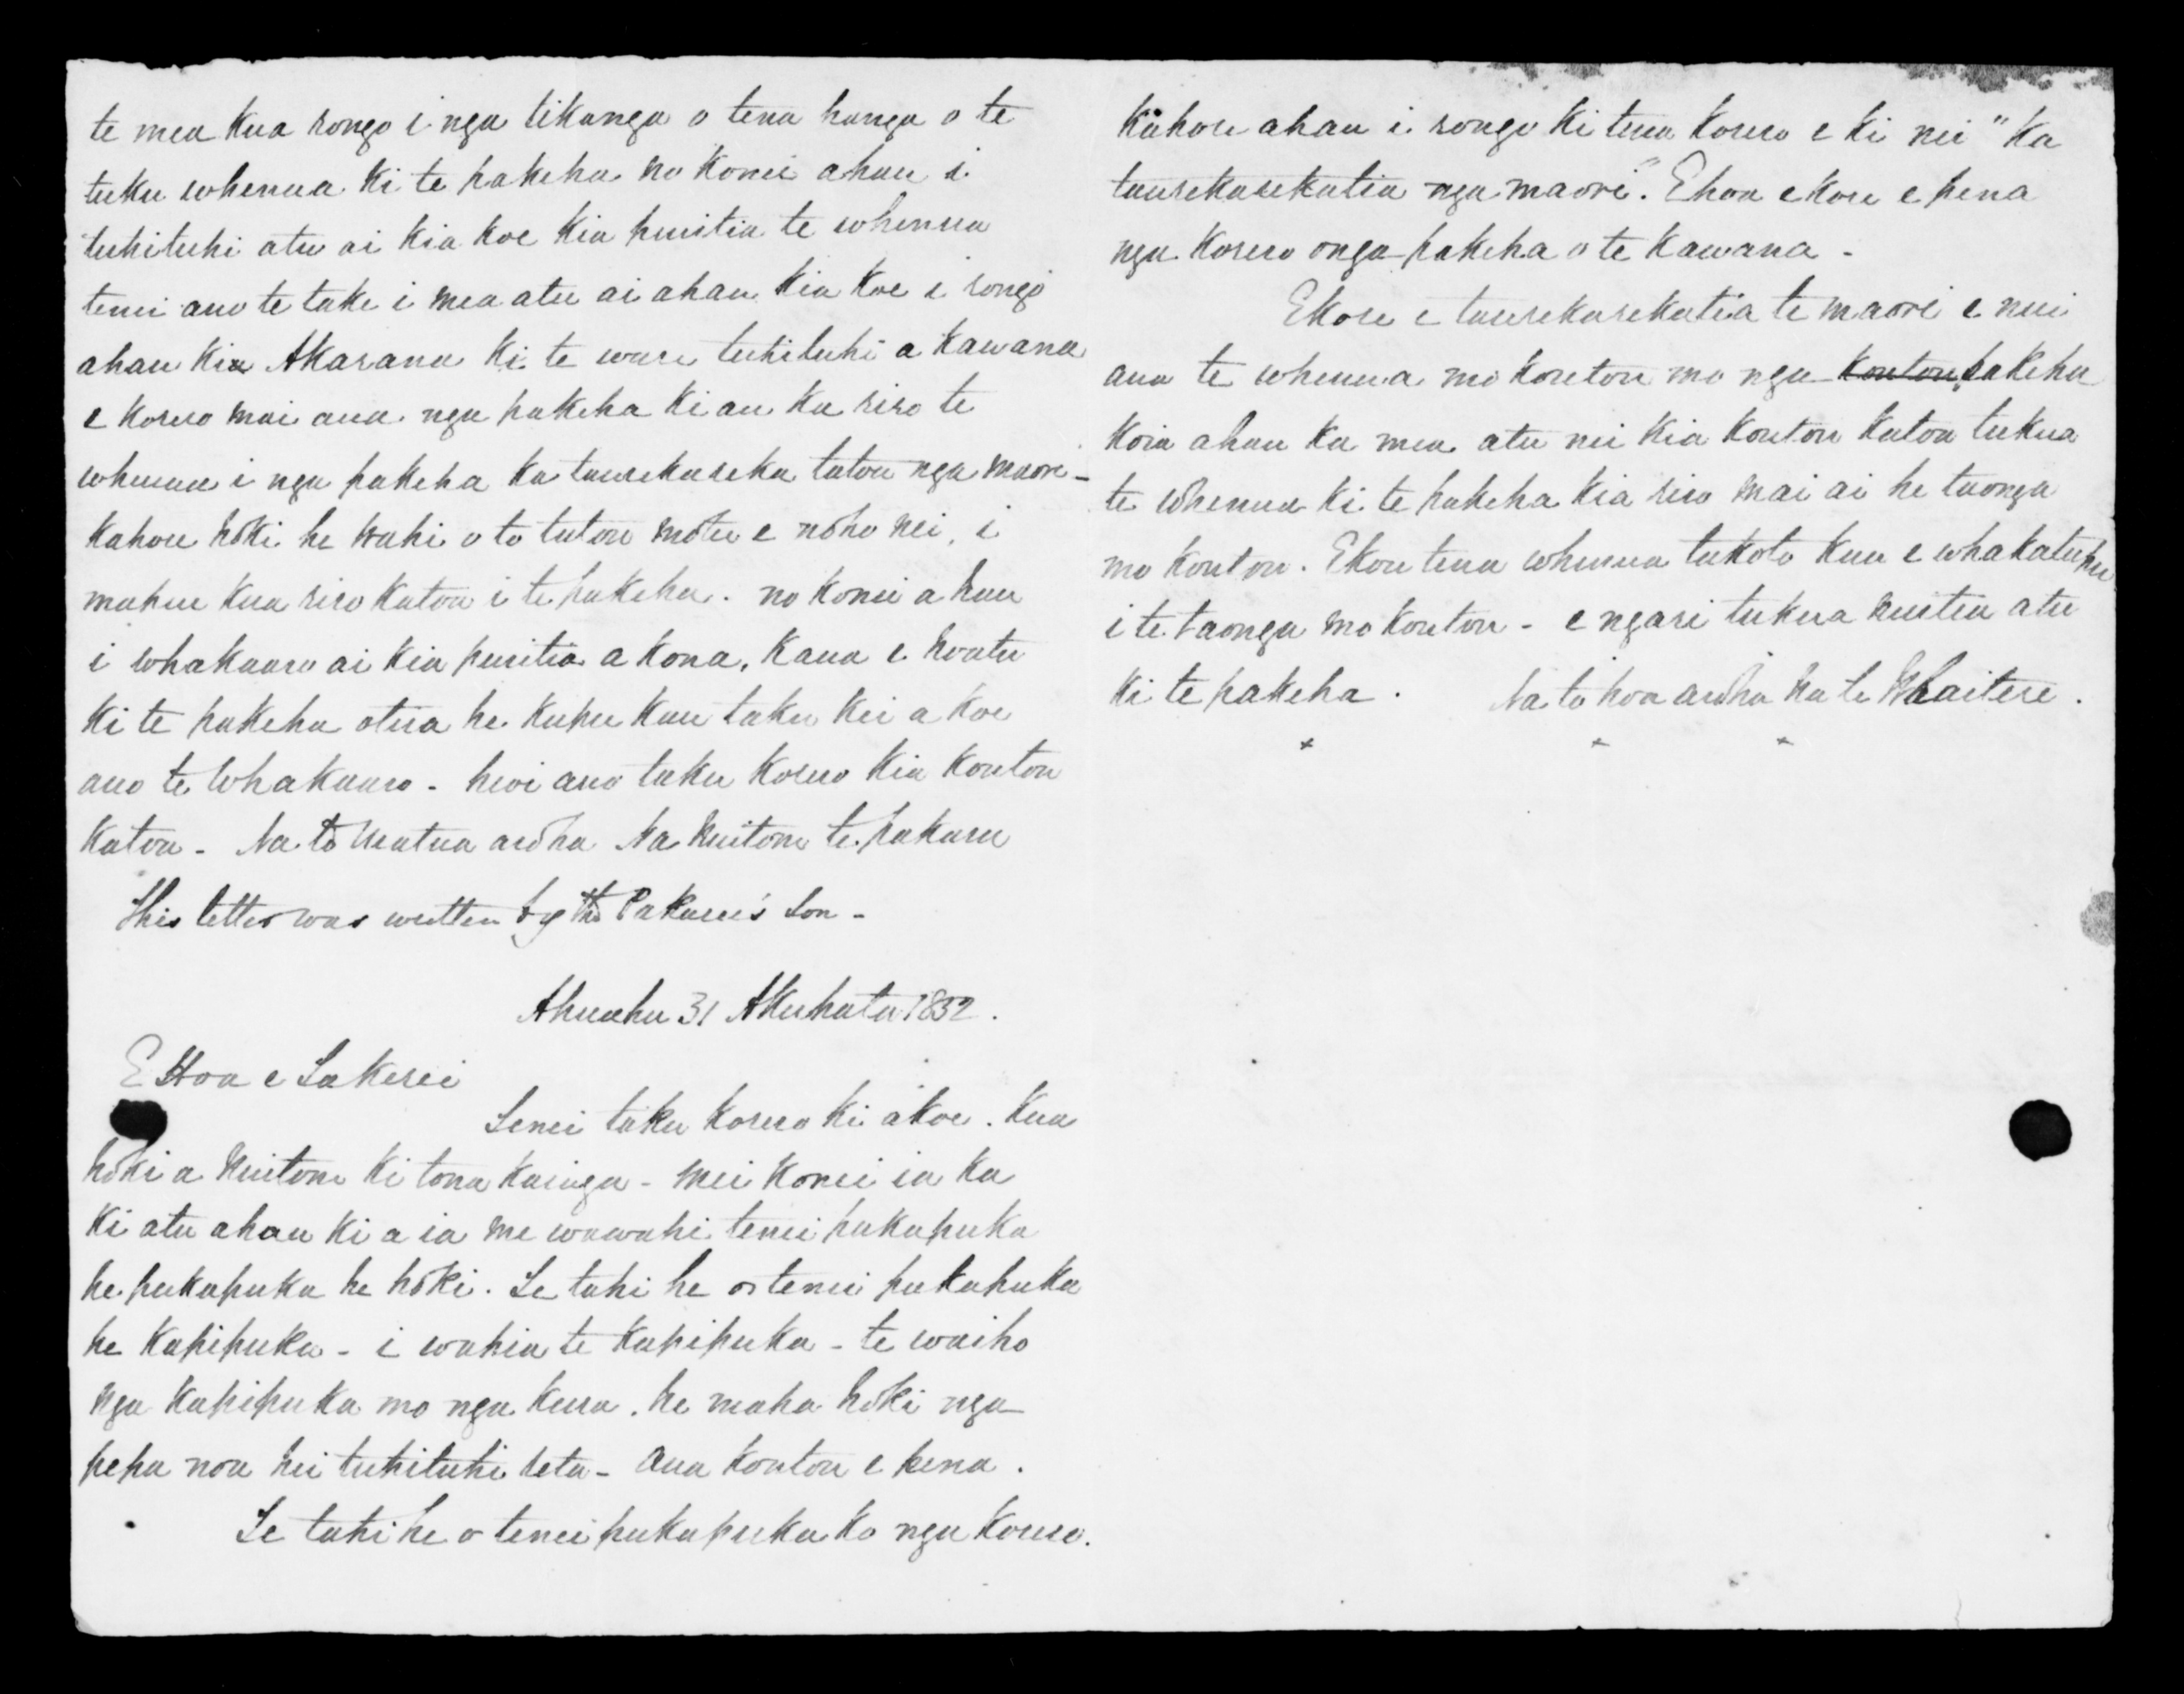 te mea kua rongo i nga tikanga o tena hanga o te
tuku whenua ki te pakeha no konei ahau i
tuhituhi atu ai kia koe kia puritia te whenua
tenei ano te take i mea atu ai ahau kia koe i rongo
ahau kia Akarana ki te ware tuhituhi a Kawana
e korero mai ana nga pakeha ki au ka riro te
whenua i nga pakeha ka taurekareka tatou nga maori -
kahore hoki he wahi o to tatou motu e noho nei, i
mahue kua riro katoa i te pakeha. no konei ahau
i whakaaro ai kia puritia a kona, kaua e hoatu
ki te pakeha otira he kupu kau taku kei a koe
ano te whakaaro - heoi ano taku korero kia koutou
katoa - Na to matua aroha Na Kuitone te pakaru
This letter was written by the Pakaru's Son -
Ahuahu 31 Akuhata 1852.
E Hoa e Takerei
Tenei taku korero ki a koe. Kua
hoki a Kuitone ki tona kainga - mei konei ia ka
ki atu ahau ki a ia me wawahi tenei pukapuka
he pukapuka he hoki. Te tahi he o tenei pukapuka
he kapipuka - i wahia te kapipuka - te waiho
nga kapipuka mo nga kura. he maha hoki nga
pepa noa hei tuhituhi reta - aua koutou e pena.
Te tahi he o tenei pukapuka ko nga korero.
Kahore ahau i rongo ki tena korero e ki nei "Ka
taurekarekatia nga maori". Ehoa ekore e pena
nga korero onga pakeha o te Kawana -
Ekore e taurekarekatia te maori e nui
ana te whenua mo koutou mo nga koutou pakeha
koia ahau ka mea atu nei kia koutou katoa tukua
te whenua ki te pakeha kia riro mai ai he taonga
mo koutou. Ekore tena whenua takoto kau e whakatupu
i te taonga mo koutou - e ngari tukua huitia atu
ki te pakeha. Na to hoa aroha Na te Whaitere.